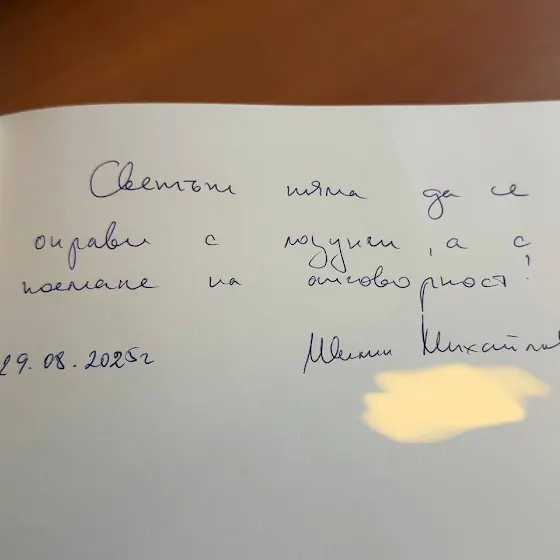 Светът няма да се
оправи с лозунги, а с
поемане на отговорност!
29.08.2025г
Михайлов